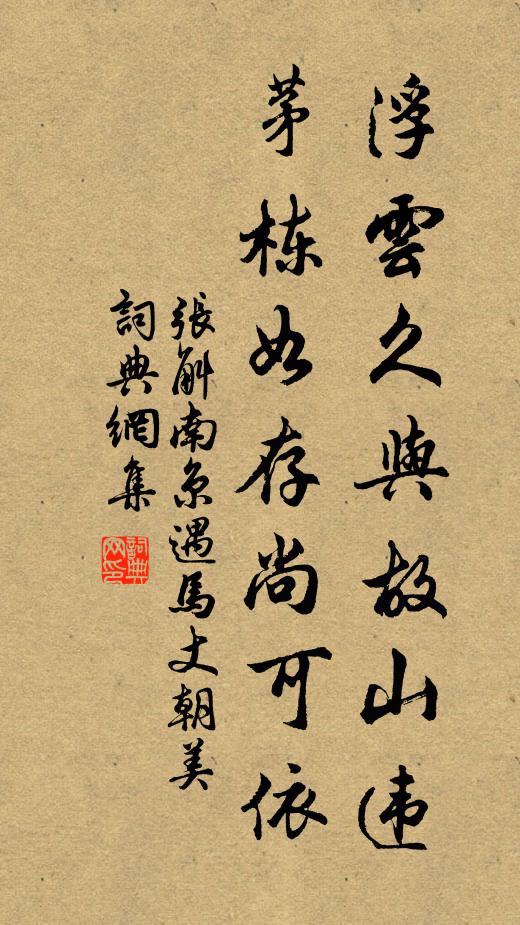 浮雲久與故山違
茅栋如存尚可依
張斛南京遇馬丈朝美
詞典網集
詞典網印